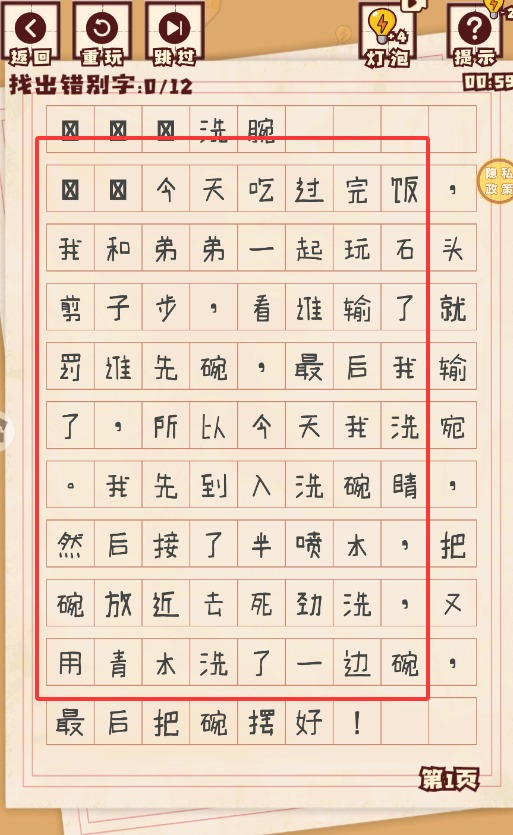 返回 重玩 跳过 +4 灯泡 提示
找出错别字:0/12 00:59
洗腕
隐私政策
今天吃过完饭，
我和弟弟一起玩石头
剪子步，看谁输了就
罚谁先碗，最后我输
了，所以今天我洗宛
。我先到入洗碗睛，
然后接了半喷水，把
碗放近去死劲洗，又
用青水洗了一边碗，
最后把碗摆好！
第1页